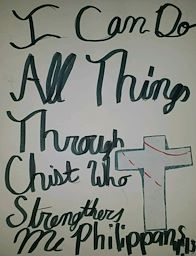 I Can Do
All Things
Through
Chist Who
Strengthers
Me Philippans